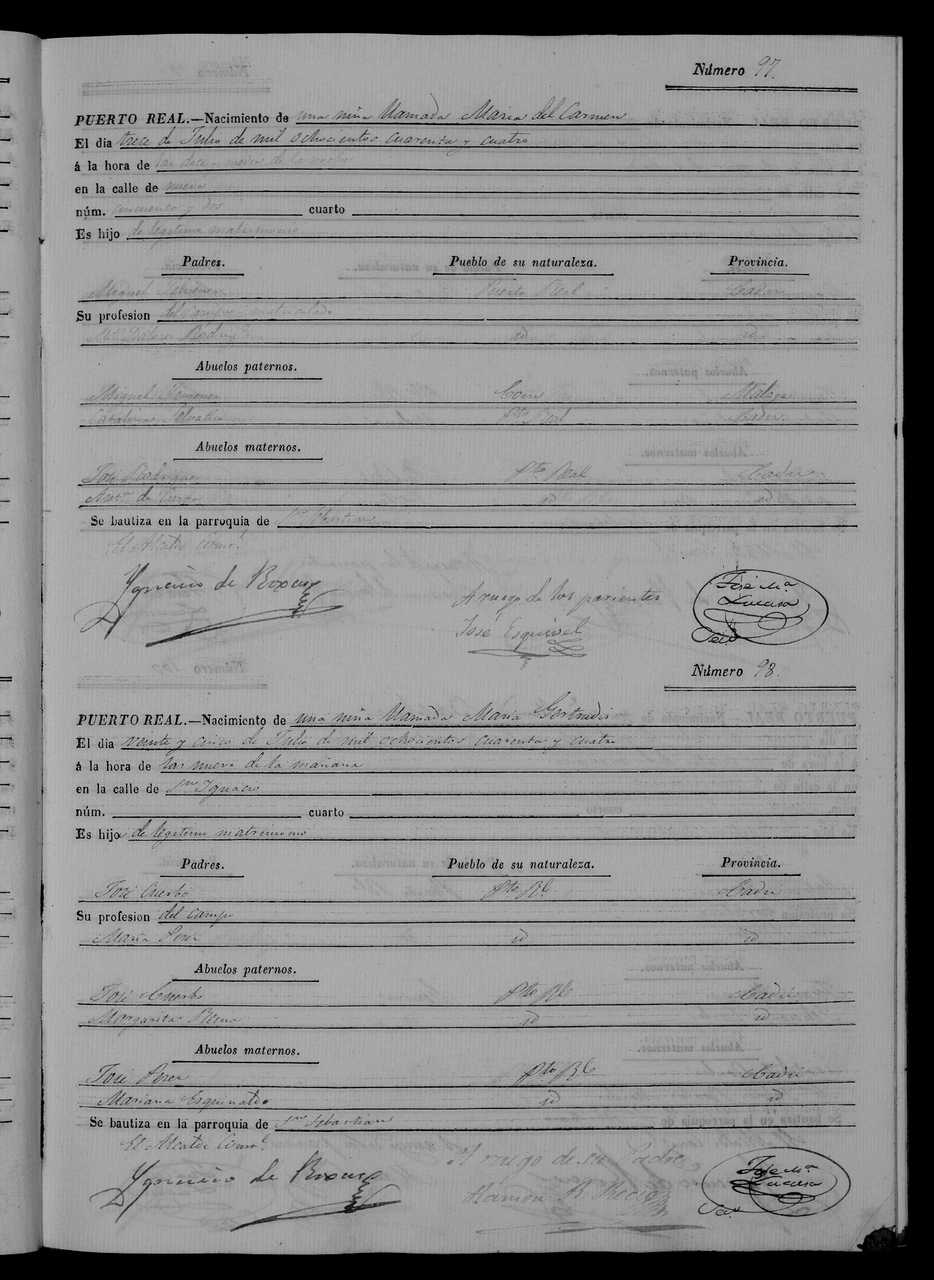 Número 97.
PUERTO REAL.—Nacimiento de una niña llamada Maria del Carmen
El dia trece de Julio de mil ochocientos cuarenta y cuatro
á la hora de las doce y media de la noche
en la calle de nueva
núm. cincuenta y dos cuarto
Es hijo de legitimo matrimonio
Padres. Pueblo de su naturaleza. Provincia.
Miguel Puerto Real Cadiz
Su profesion del campo
id id
Abuelos paternos.
Miguel Coin Malaga
Pto Real Cadiz
Abuelos maternos.
José Rodriguez Pto Real Cadiz
id id
Se bautiza en la parroquia de Sn Sebastian
El Alcalde Const.
Ygnacio de
A ruego de los parientes
José Esquivel
José Ma.
Número 98.
PUERTO REAL.—Nacimiento de una niña llamada Maria Gertrudis
El dia veinte y cinco de Julio de mil ochocientos cuarenta y cuatro
á la hora de las nueve de la mañana
en la calle de Sn Ygnacio
núm. cuarto
Es hijo de legitimo matrimonio
Padres. Pueblo de su naturaleza. Provincia.
José Cuerbo Pto Rl Cadiz
Su profesion del campo
Maria Perez id id
Abuelos paternos.
José Cuerbo Pto Rl Cadiz
Margarita id id
Abuelos maternos.
José Perez Pto Rl Cadiz
Mariana id id
Se bautiza en la parroquia de Sn Sebastian
El Alcalde Const.
Ygnacio de
A ruego de su Padre
Ramon R.
José Ma.